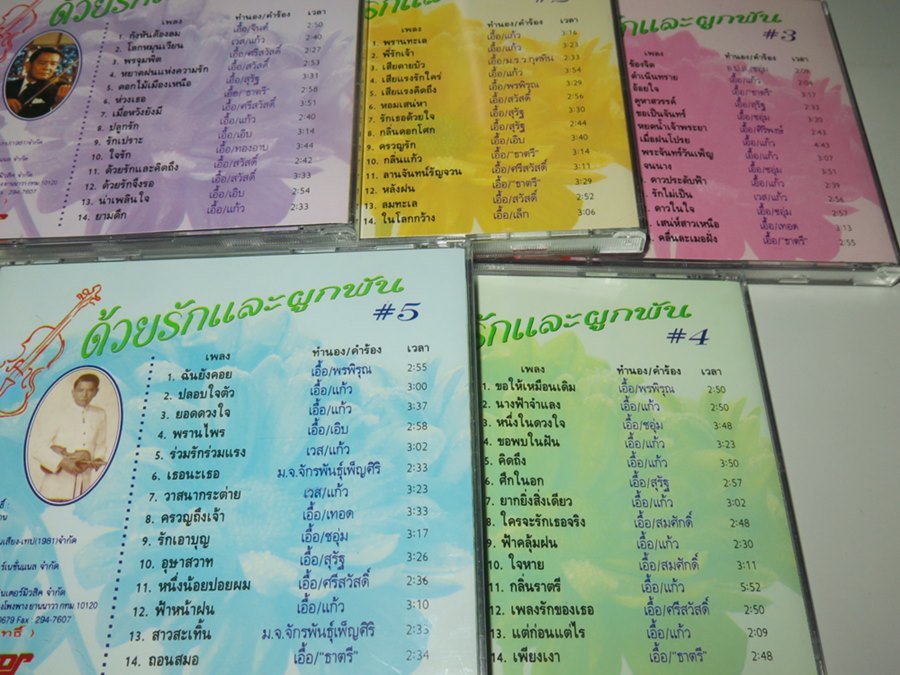 ด้วยรักและผูกพัน
เพลง ทำนอง/คำร้อง เวลา
1. กังหันต้องลม เอื้อ/จินท์ 2:50
2. โลกหมุนเวียน เวส/แก้ว 2:40
3. พรจุมพิต เอื้อ/ศรีสวัสดิ์ 2:27
4. หยาดฝนแห่งความรัก เอื้อ/สวัสดิ์ 2:53
5. ดอกไม้เมืองเหนือ เอื้อ/สุรัฐ 3:31
6. ห่วงเธอ เอื้อ/"ธาตรี" 2:58
7. เมื่อหวังยังมี เอื้อ/ศรีสวัสดิ์ 3:51
8. ปลูกรัก เอื้อ/แก้ว 2:40
9. รักเปราะ เอื้อ/เอิบ 3:14
10. ใจรัก เอื้อ/ทองอาบ 3:44
11. ด้วยรักและคิดถึง เอื้อ/สวัสดิ์ 2:42
12. ด้วยรักจึงรอ เอื้อ/ศรีสวัสดิ์ 3:33
13. น่าเพลินใจ เอื้อ/เอิบ 2:54
14. ยามดึก เอื้อ/แก้ว 2:33
รักและผูกพัน
เพลง ทำนอง/คำร้อง เวลา
1. พรานทะเล เอื้อ/แก้ว 3:16
2. พี่รักเจ้า เอื้อ/แก้ว 3:23
3. เสียดายบัว เอื้อ/ม.ร.ว.กุศทิน
4. เสียแรงรักใคร่ เอื้อ/แก้ว 3:54
5. เสียแรงคิดถึง เอื้อ/พรพิรุณ 3:29
6. หอมเสน่หา เอื้อ/สวัสดิ์ 2:56
7. รักเธอด้วยใจ เอื้อ/สุรัฐ 3:30
8. กลิ่นดอกโศก เอื้อ/สุรัฐ 2:44
9. ครวญรัก เอื้อ/เอิบ 3:40
10. กลิ่นแก้ว เอื้อ/"ธาตรี" 3:14
11. ลานจันทน์รัญจวน เอื้อ/ศรีสวัสดิ์ 3:11
12. หลังฝน เอื้อ/"ธาตรี" 3:29
13. ลมทะเล เอื้อ/สวัสดิ์ 2:52
14. ในโลกกว้าง เอื้อ/เล็ก 3:06
รักและผูกพัน
#3
เพลง ทำนอง/คำร้อง เวลา
ร้องจิต 2:08
ดำเนินทราย เอื้อ/แก้ว 2:04
อ้อยใจ เอื้อ/"ธาตรี" 3:17
คูหาสวรรค์ เอื้อ/สุรัฐ 2:33
ขอเป็นจันทร์ เอื้อ/ชอุ่ม 3:20
หยดน้ำเจ้าพระยา เอื้อ/ศิริพงษ์ 2:43
เมื่อฝนโปรย เอื้อ/แก้ว 4:43
พระจันทร์วันเพ็ญ เอื้อ/แก้ว 3:07
จนนาง เอื้อ/ชอุ่ม 2:51
ดาวประดับฟ้า เอื้อ/แก้ว 2:39
รักไม่เป็น เวส/แก้ว 2:56
ดาวในใจ เอื้อ/ชอุ่ม 2:57
เสน่ห์สาวเหนือ เอื้อ/เทอด 3:13
คลื่นละเมอฝั่ง เอื้อ/"ธาตรี" 2:55
ด้วยรักและผูกพัน
#5
เพลง ทำนอง/คำร้อง เวลา
1. ฉันยังคอย เอื้อ/พรพิรุณ 2:55
2. ปลอบใจตัว เอื้อ/แก้ว 3:00
3. ยอดดวงใจ เอื้อ/แก้ว 3:37
4. พรานไพร เอื้อ/เอิบ 2:58
5. ร่วมรักร่วมแรง เวส/แก้ว 3:02
6. เธอนะเธอ ม.จ.จักรพันธุ์เพ็ญศิริ 2:33
7. วาสนากระต่าย เวส/แก้ว 3:23
8. ครวญถึงเจ้า เอื้อ/เทอด 3:33
9. รักเอาบุญ เอื้อ/ชอุ่ม 3:17
10. อุษาสวาท เอื้อ/สุรัฐ 3:26
11. หนึ่งน้อยปอยผม เอื้อ/ศรีสวัสดิ์ 2:36
12. ฟ้าหน้าฝน เอื้อ/แก้ว 3:10
13. สาวสะเทิ้น ม.จ.จักรพันธุ์เพ็ญศิริ 2:35
14. ถอนสมอ เอื้อ/"ธาตรี" 2:34
มเสียง-เทป(1981)จำกัด
ร์เนชั่นแนล จำกัด
นเตอร์มิวสิค จำกัด
โพงพาง ยานนาวา กทม 10120
0679 Fax : 294-7607
รักและผูกพัน
#4
เพลง ทำนอง/คำร้อง เวลา
1. ขอให้เหมือนเดิม เอื้อ/พรพิรุณ 2:50
2. นางฟ้าจำแลง เอื้อ/แก้ว 2:50
3. หนึ่งในดวงใจ เอื้อ/ชอุ่ม 3:48
4. ขอพบในฝัน เอื้อ/แก้ว 3:23
5. คิดถึง เอื้อ/แก้ว 3:50
6. ศึกในอก เอื้อ/สุรัฐ 2:57
7. ยากยิ่งสิ่งเดียว เอื้อ/แก้ว 3:02
8. ใครจะรักเธอจริง เอื้อ/สมศักดิ์ 2:48
9. ฟ้าคลุ้มฝน เอื้อ/แก้ว 2:30
10. ใจหาย เอื้อ/สมศักดิ์ 3:11
11. กลิ่นราตรี เอื้อ/แก้ว 5:52
12. เพลงรักของเธอ เอื้อ/ศรีสวัสดิ์ 2:50
13. แต่ก่อนแต่ไร เอื้อ/แก้ว 2:09
14. เพียงเงา เอื้อ/"ธาตรี" 2:48